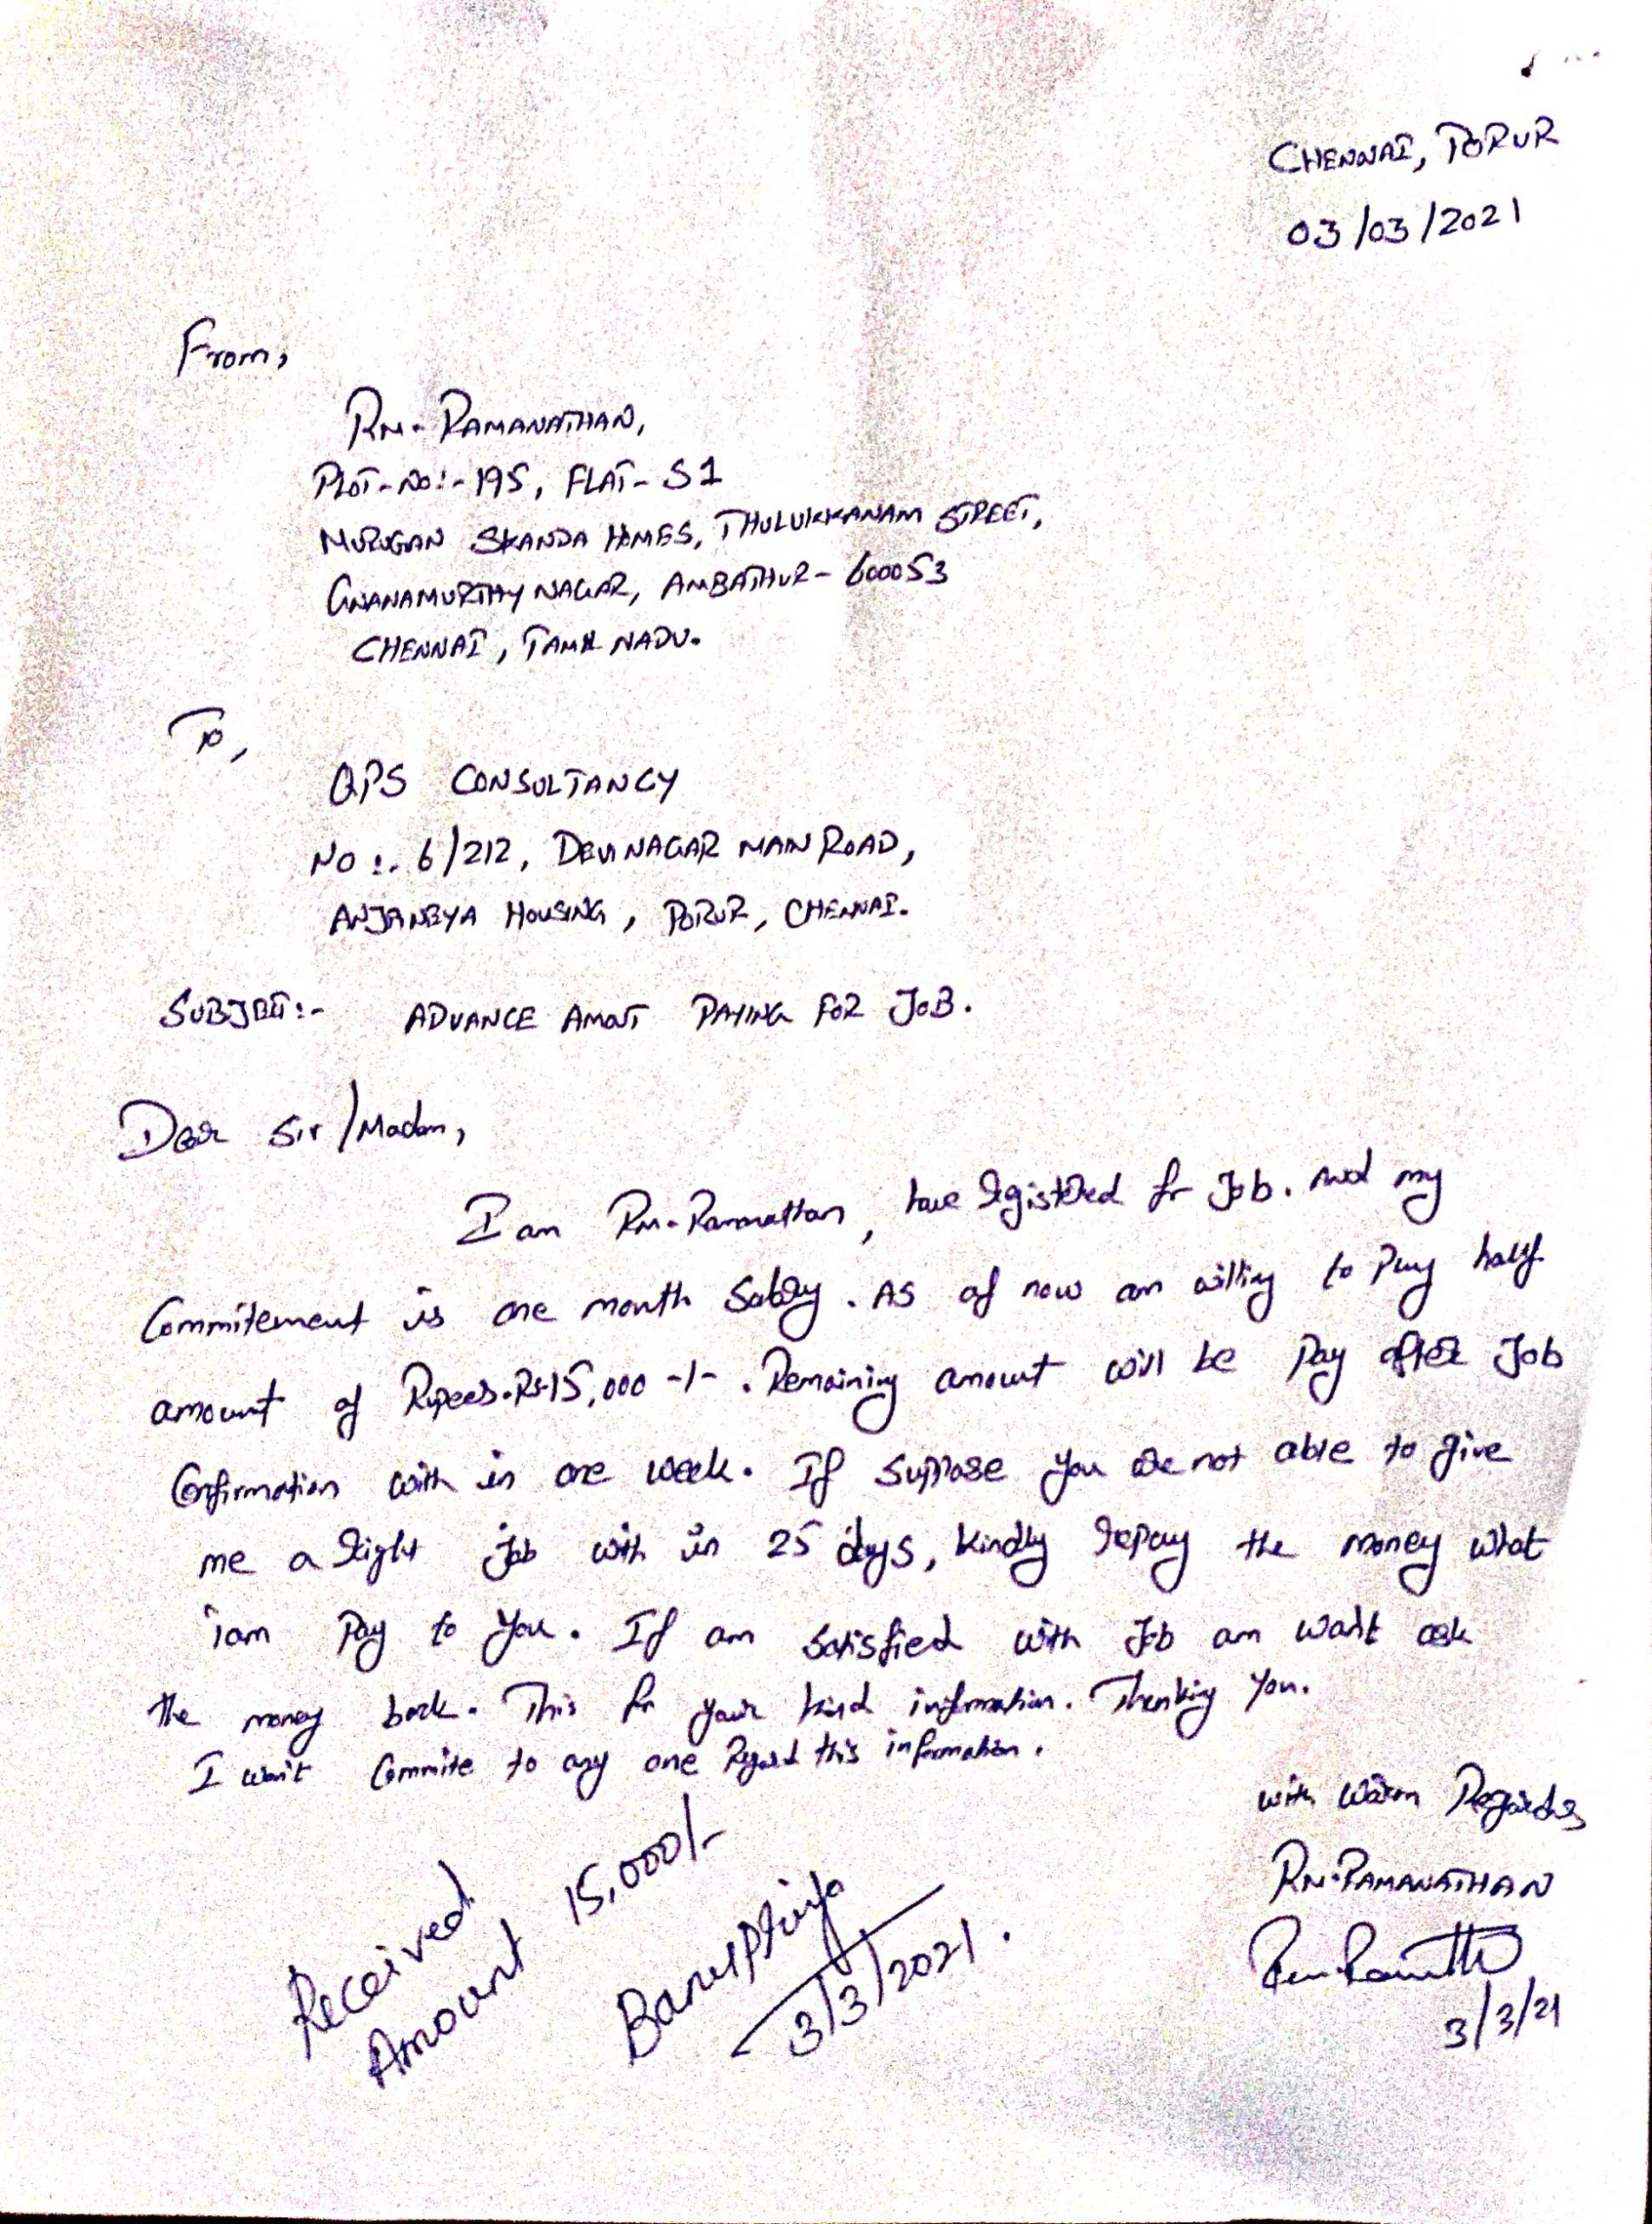 CHENNAI, PORUR
03/03/2021
From,
RM. RAMANATHAN,
PLOT-NO:- 195, FLAT- S1
MURUGAN SKANDA HOMES, THULUKKANAM STREET,
GNANAMURTHY NAGAR, AMBATHUR - 600053
CHENNAI, TAMIL NADU.
To,
QPS CONSULTANCY
NO:. 6/212, DEVI NAGAR MAIN ROAD,
ANJANEYA HOUSING, PORUR, CHENNAI.
SUBJECT:- ADVANCE AMOUT PAYING FOR JOB.
Dear Sir/Madam,
I am RM. Ramanathan, have registered for Job. And my
Commitement is one month Salary. As of now am willing to Pay half
amount of Rupees.Rs.15,000 -/-. Remaining amount will be Pay after Job
Confirmation with in one week. If Suppose you are not able to give
me a right job with in 25 days, kindly repay the money what
iam Pay to you. If am Satisfied with Job am wan't ask
the money back. This for your kind information. Thanking You.
I won't Commite to any one Regard this information.
with Warm Regards
RM. RAMANATHAN
3/3/21
Received
Amount 15,000/-
Banupriya
3/3/2021.